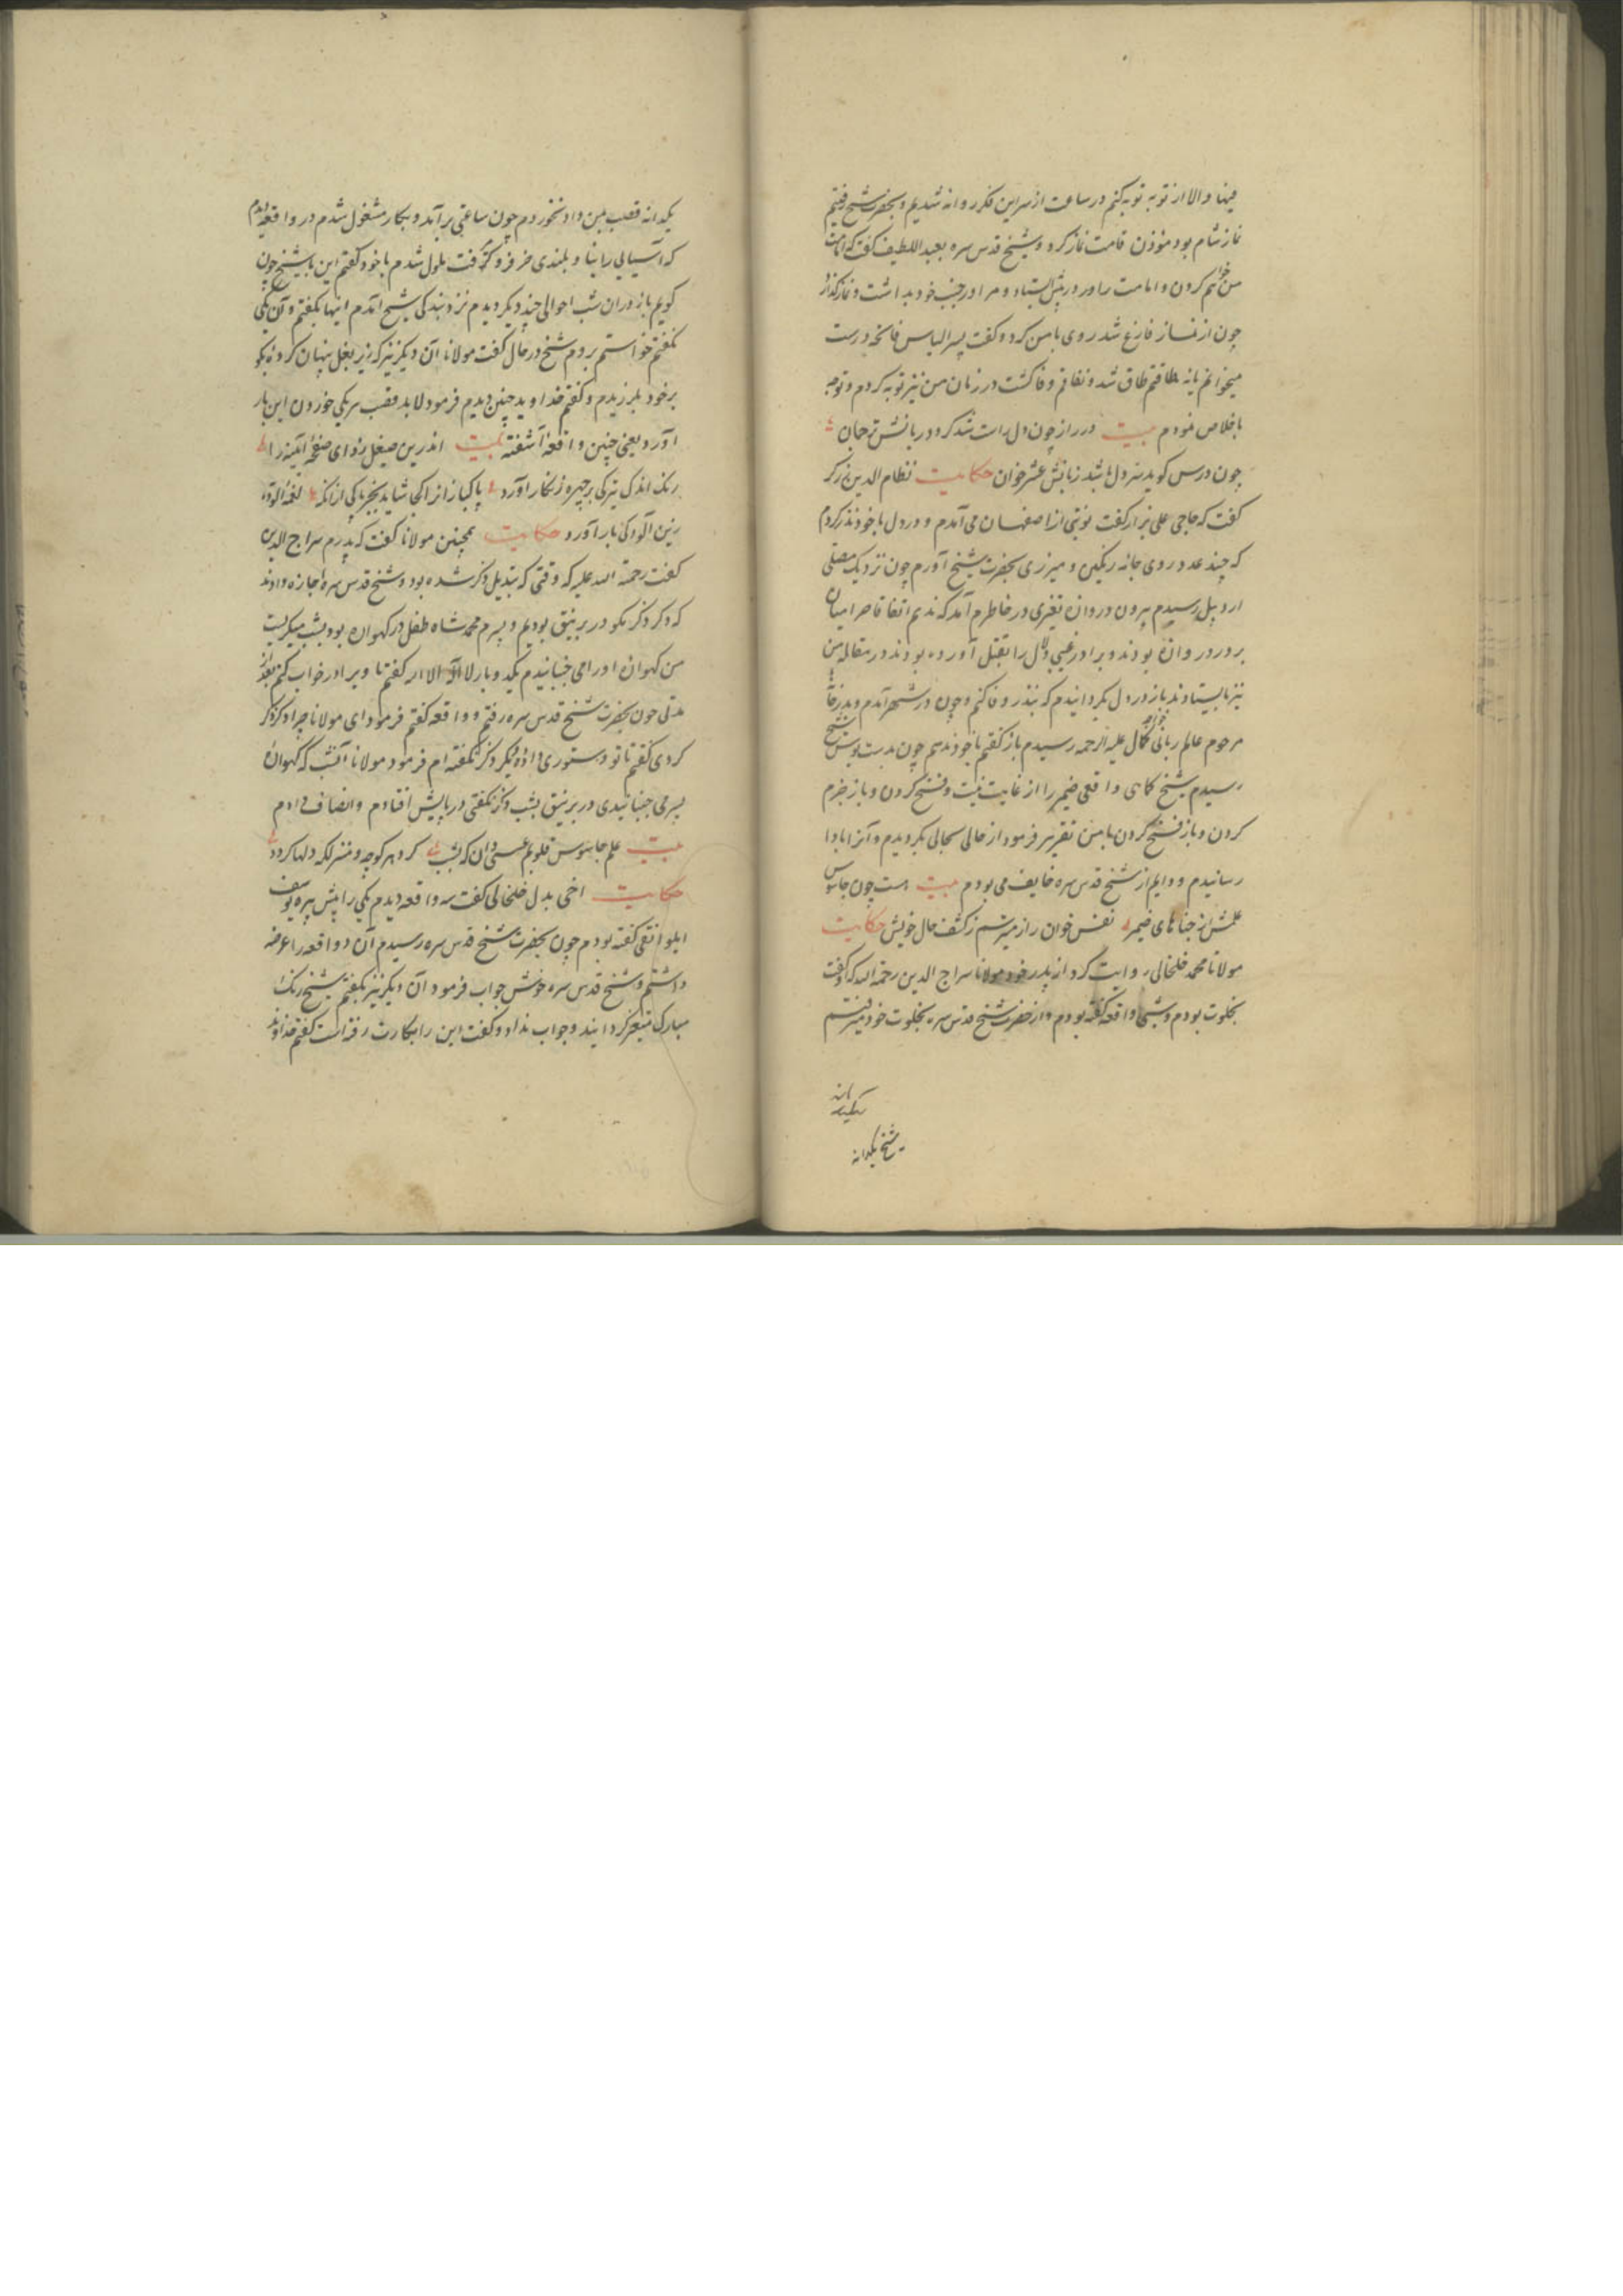 فیها والا از توبه توبه کنم در ساعت از سر این فکر روانه شدیم و بحضرت شیخ رفتیم
نماز شام بود مؤذن قامت نماز کرد و شیخ قدس سره بعبد اللطیف گفت که امامت
من خواهم کردن و امامت را ور در پیش استاد و مرا در جنب خود بداشت و نماز گذارد
چون از نماز فارغ شد روی با من کرد و گفت پسر الیاس فاتحه درست
میخوانم یا نه طاقتم طاق شد و نفاقم وفا گشت در زمان من نیز توبه کردم و توجه
باخلاص نمودم بیت در راز چون دل راست شد کردد زبانش ترجمان
چون درس کوید سر دل باشد زبانش عشر خوان حکایت نظام الدین زرکر
کفت که حاجی علی بزار کفت نوبتی از اصفهان می آمدم و در دل با خود نذر کردم
که چند عدد روی جامه رنکین و میزری بحضرت شیخ آورم چون نزدیک مصلی
اردبیل رسیدم بیرون دروازه تغیری در خاطرم آمد که ندهم اتفاقا حرامیان
بر در دروازه بودند و برادر غیبی دلال را بقتل آورده بودند در مقابله من
نیز بایستادند باز در دل بکردانیدم که بنذر وفا کنم و چون در شهر آمدم و بدر خانه
مرحوم عالم ربانی خواجه کمال علیه الرحمه رسیدم باز کفتم با خود ندهم چون بدست بوس شیخ
رسیدم شیخ کماهی واقعی ضمیر را از غایت نیت و فسخ کردن و باز جزم
کردن و باز فسخ کردن با من تقریر فرمود از حالی بحالی بکردیدم و آنرا بادا
رسانیدم و دایم از شیخ قدس سره خایف می بودم بیت هست چون جاسوس
علمش از جناهای ضمیر نفس خوان راز میترسم ز کشف حال خویش حکایت
مولانا محمد خلخالی روایت کرد از پدر خود مولانا سراج الدین رحمة الله که او کفت
بخلوت بودم و شبی واقعه کفته بودم و از حضرت شیخ قدس سره بخلوت خود میرفتم
شیخ یکدانه
یکدانه قصب بمن داد نخوردم چون ساعتی برآمد و بکار مشغول شدم در واقعه دیدم
که آسیایی را بنا و بلندی خر فرو کرفت ملول شدم با خود کفتم این با شیخ چون
کویم باز در آن شب احوالی چند دیکر دیدم نزد بندکی شیخ آمدم اینها بکفتم و آن یکی
نکفتم خواستم بروم شیخ در حال کفت مولانا آن دیکر نیز که زیر بغل پنهان کرده بکو
برخود بلرزیدم و کفتم خداوند چنین دیدم فرمود لابد قصب مریکی خوردن این بار
آورد یعنی چنین واقعه آشفته بیت اندرین صیقل زدای صفحه آئینه را
رنک اندک تیرکی بر چهره زنکار آورد پاکباز از پاکی شاید بجز پاکی از آنکه لقمه آلوده
زین آلودکی بار آورد حکایت همچنین مولانا کفت که پدرم سراج الدین
کفت رحمة الله علیه که وقتی که تبدیل ذکر شده بود و شیخ قدس سره اجازه دادند
که ذکر ذکر بکو در برنیق بودیم و پسرم محمد شاه طفل در کهواره بود بشب میکریست
من کهواره او را می جنبانیدم یکدو بار لا اله الا الله کفتم تا ویرا در خواب کنم بعد از
مدتی چون بحضرت شیخ قدس سره رفتم و واقعه کفتم فرمود ای مولانا چرا ذکر ذکر
کردی کفتم تا تو دستوری داده دیکر ذکر نکفته ام فرمود مولانا آنشب که کهواره
پسر می جنبانیدی در برنیق بشب ذکر نکفتی در پایش افتادم و انصاف دادم
بیت علم جاسوس قلوبم عسسی دان که بشب کرد هر کوچه و منزلکه دلها کردد
حکایت اخی بدل خلخالی کفت سه واقعه دیدم یکی را پیش پیره یوسف
ایلواتقی کفته بودم چون بحضرت شیخ قدس سره رسیدم آن دو واقعه را عرضه
داشتم و شیخ قدس سره خوش جواب فرمود آن دیکر نیز بکفتم شیخ رنک
مبارک متغیر کردانید و جواب نداد و کفت این را بکارت رفته است کفتم خداوند